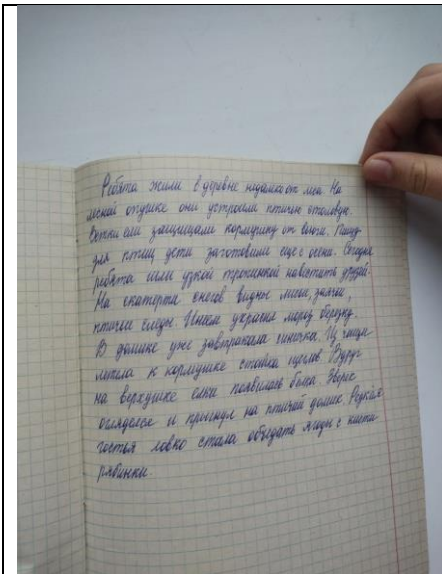 Ребята жили в деревне недалеко от леса. На
лесной опушке они устроили птичью столовую.
Ветки ели защищали кормушку от снега. Пищу
для птиц дети заготовили еще с осени. Сегодня
ребята шли узкой тропинкой навестить друзей.
На скатерти снегов видны лисьи, заячьи,
птичьи следы. Инеем украсил мороз березку.
В домике уже завтракала синичка. Из чащи
летела к кормушке стайка щеглов. Вдруг
на верхушке елки появилась белка. Зверёк
огляделся и прыгнул на птичий домик. Редкая
гостья ловко стала объедать ягоды с кисти
рябинки.